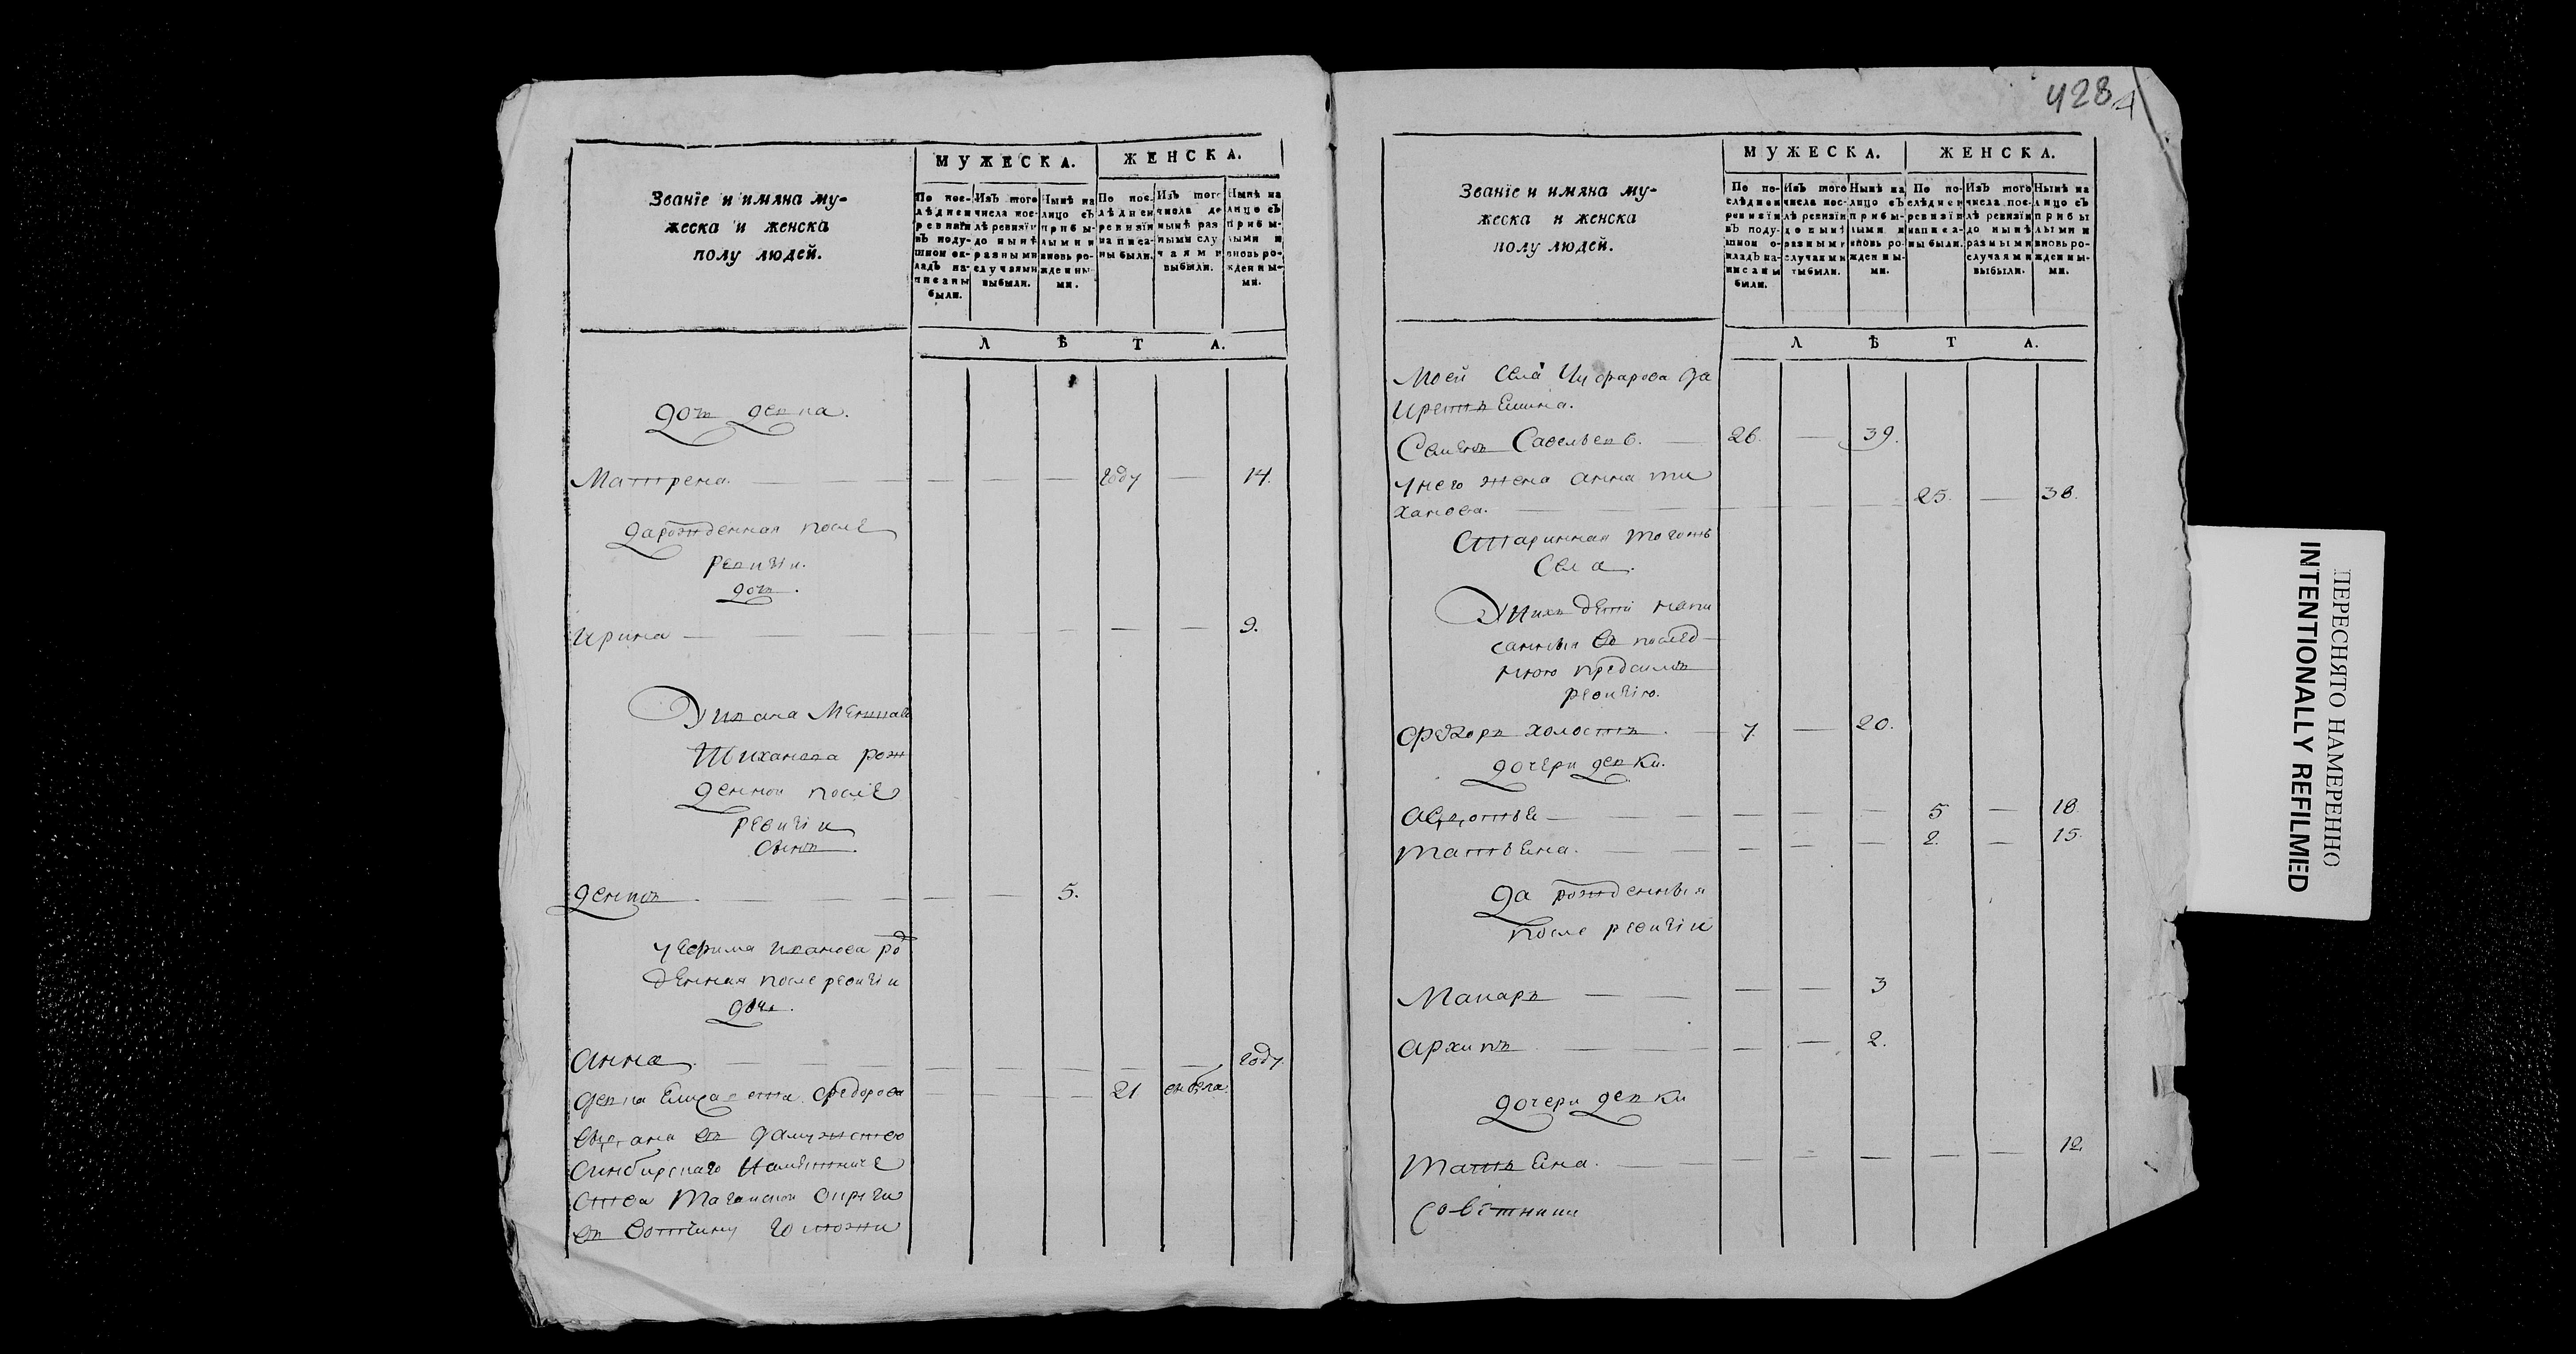 МУЖЕСКА. ЖЕНСКА.
Званїе и имяна му-
жеска и женска
полу людей.
По пос-
лѣдней
ревизїи
въ поду-
шной ок-
ладъ на-
писаны
были.
Изъ того
числа пос-
лѣ ревизїи
до нынѣ
разными
случаями
выбыли.
Нынѣ на
лицо съ
прибы-
лыми и
вновь ро-
жденны-
ми.
По пос-
лѣдней
ревизїи
написа-
ны были.
Изъ того
числа до
нынѣ раз
ными слу
чаями
выбыли.
Нынѣ на
лицо съ
прибы-
лыми и
вновь ро-
жденны-
ми.
Л Ѣ Т А.
дочь девка.
Матрена. году 14.
Да рожденная после
ревизiи.
дочь.
Ирина 9.
У Ивана
Тиханова рож
денной после
ревизiи
сынъ.
5.
у Ефима Иванова рож
денная после ревизiи
дочь.
Анна году
девка Елизавета Федорова 21 оная
выдана въ замужство
Синбирскаго Наместниче
ства округи
въ вотчину госпожи
428
МУЖЕСКА. ЖЕНСКА.
Званїе и имяна му-
жеска и женска
полу людей.
По по-
слѣдней
ревизїи
въ поду-
шной о-
кладъ на-
писаны
были.
Изъ того
числа пос-
лѣ ревизїи
до нынѣ
разными
случаями
выбыли.
Нынѣ на
лицо съ
прибы-
лыми и
вновь ро-
жденны-
ми.
По по-
слѣдней
ревизїи
написа-
ны были.
Изъ того
числа пос-
лѣ ревизїи
до нынѣ
разными
случаями
выбыли.
Нынѣ на
лицо съ
прибы
лыми и
вновь ро-
жденны-
ми.
Л Ѣ Т А.
моей села Чуфарова
Семенъ Савельевъ. 26. 39.
у него жена Анна Ти
ханова. 25. 38.
Старинная тогожъ
села.
У нихъ дети напи
санныя въ послед
нюю пред симъ
ревизiю.
Федоръ холостъ. 7. 20.
дочери девки.
Авдотья 5 18.
Татьяна. 2. 15.
Да рожденныя
после ревизiи
Макаръ 3
Архипъ 2.
дочери девки
Татьяна. 12.
Советники
ПЕРЕСНЯТО НАМЕРЕННО
INTENTIONALLY REFILMED